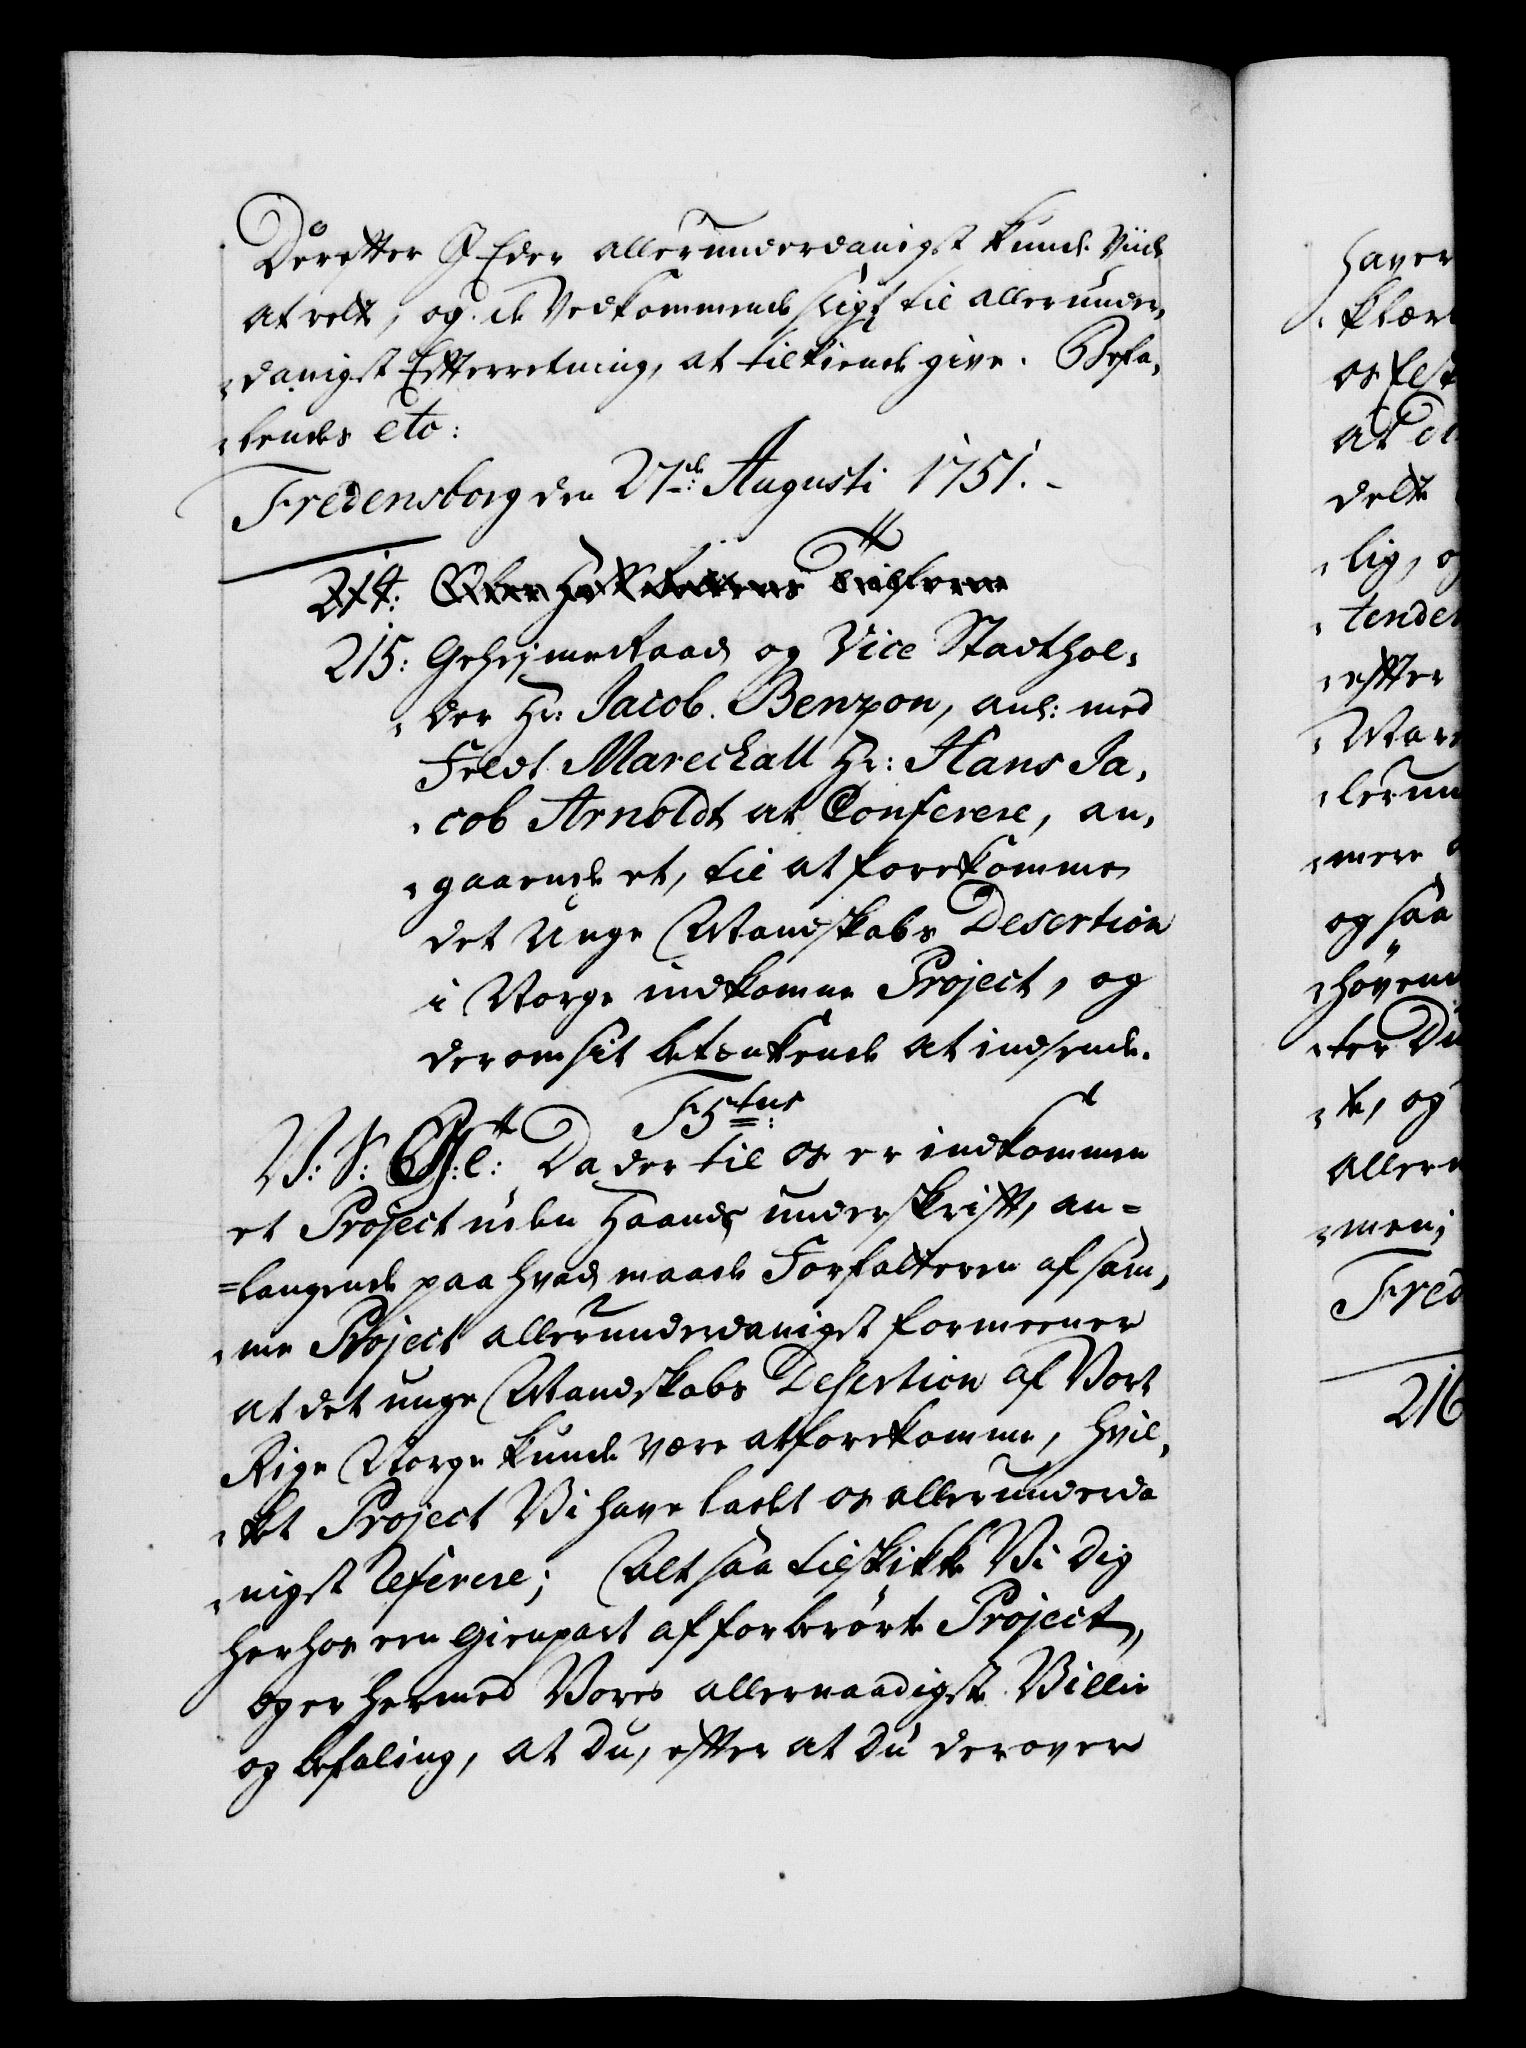 Dereffter I Eder allerunderdanigst kunde viide
at rette, og de Vedkommende sligt til allerunder,
,danigst Effterretning, at tilkiende give. Befa,
,lendes etc:
Fredensborg den 27de: Augusti 1751.-
214:
215: GeheimeRaad og Vice Stadthol,
,der Hr: Jacob Benzon, anl: med
Feldt Mareckall Hr: Hans Ja,
,cob Arnoldt at Conferere, an,
,gaaende et, til at forekomme
det Unge Mandskabs Desertion
i Norge indkomne Project, og
derom sit betænkende at indsende.
F5tus
V: S: G: T: Da der til os er indkommen
et Project uden Haands underskrifft, an=
=langende paa hvad maade Forfatteren af sam,
,me Project allerunderdanigst formeener
at det unge Mandskabs Desertion af Vort
Rige Norge kunde være at forekomme, hvil,
,ket Project Vi have ladet os allerunderda
,nigst referere; Altsaa tilskikke Vi Dig
herhos een Gienpart af forberørte Project,
og er hermed Vores allernaadigste Villie
og befaling, at Du, effter at Du derover
haver
os fest
delte
,lig, o
,tender
,effter
,mere
og saa
,ter Du
,te, og
aller
,men;
Fred
216